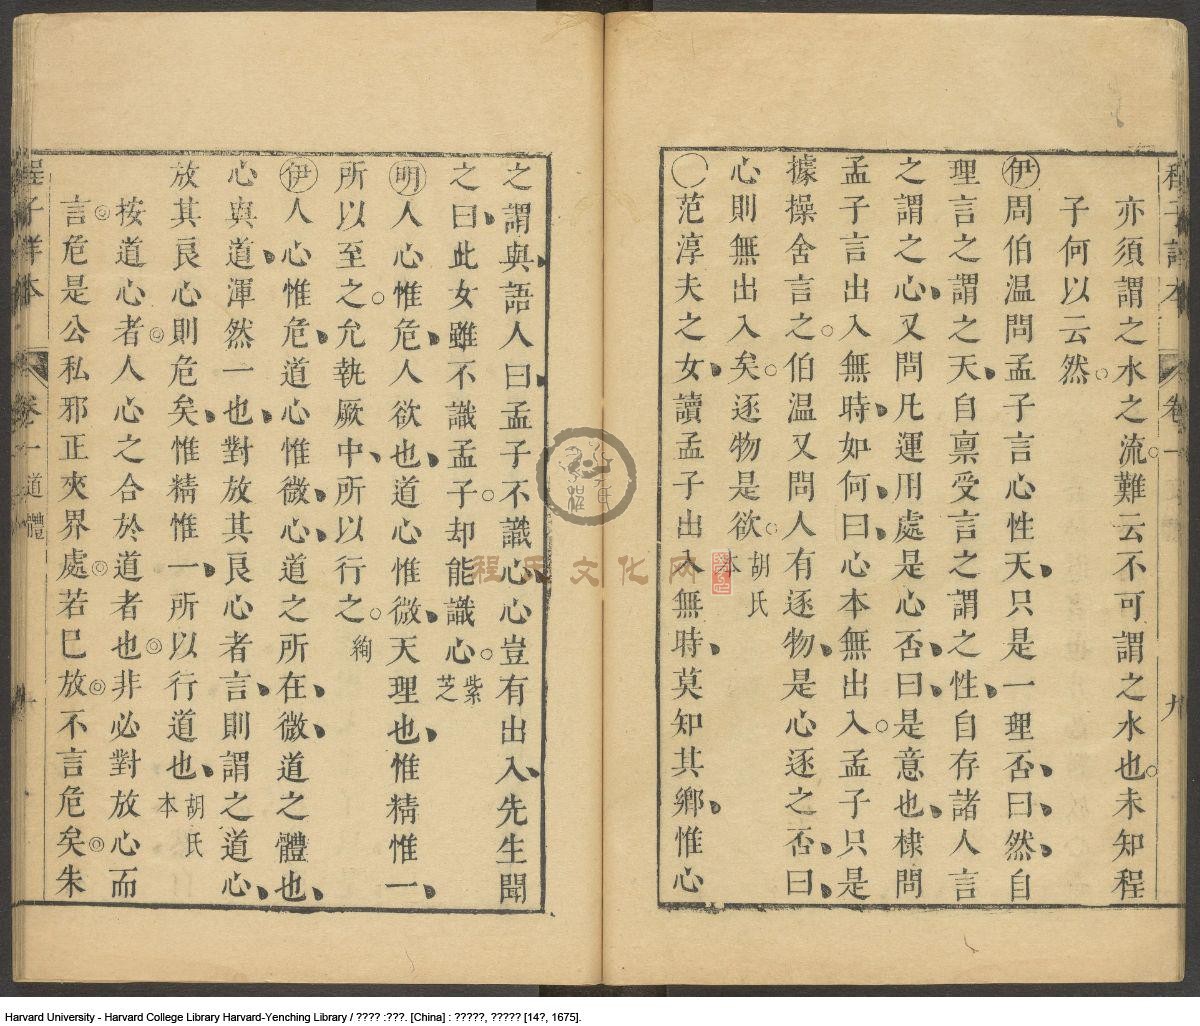 亦須謂之水之流難云不可謂之水也未知程
子何以云然
伊周伯温問孟子言心性天只是一理否曰然自
理言之謂之天自稟受言之謂之性自存諸人言
之謂之心又問凡運用處是心否曰是意也棣問
孟子言出入無時如何曰心本無出入孟子只是
據操舍言之伯温又問人有逐物是心逐之否曰
心則無出入矣逐物是欲胡氏本
〇范淳夫之女讀孟子出入無時莫知其鄉惟心
之謂與語人曰孟子不識心心豈有出入先生聞
之曰此女雖不識孟子却能識心紫芝
明人心惟危人欲也道心惟微天理也惟精惟一
所以至之允執厥中所以行之絢
伊人心惟危道心惟微心道之所在微道之體也
心與道渾然一也對放其良心者言則謂之道心
放其良心則危矣惟精惟一所以行道也胡氏本
按道心者人心之合於道者也非必對放心而
言危是公私邪正夾界處若巳放不言危矣朱
程子詳本 卷一 道體
程子詳本 卷一 九
程氏文化网
Harvard University - Harvard College Library Harvard-Yenching Library / ???? :???. [China] : ?????, ????? [14?, 1675].